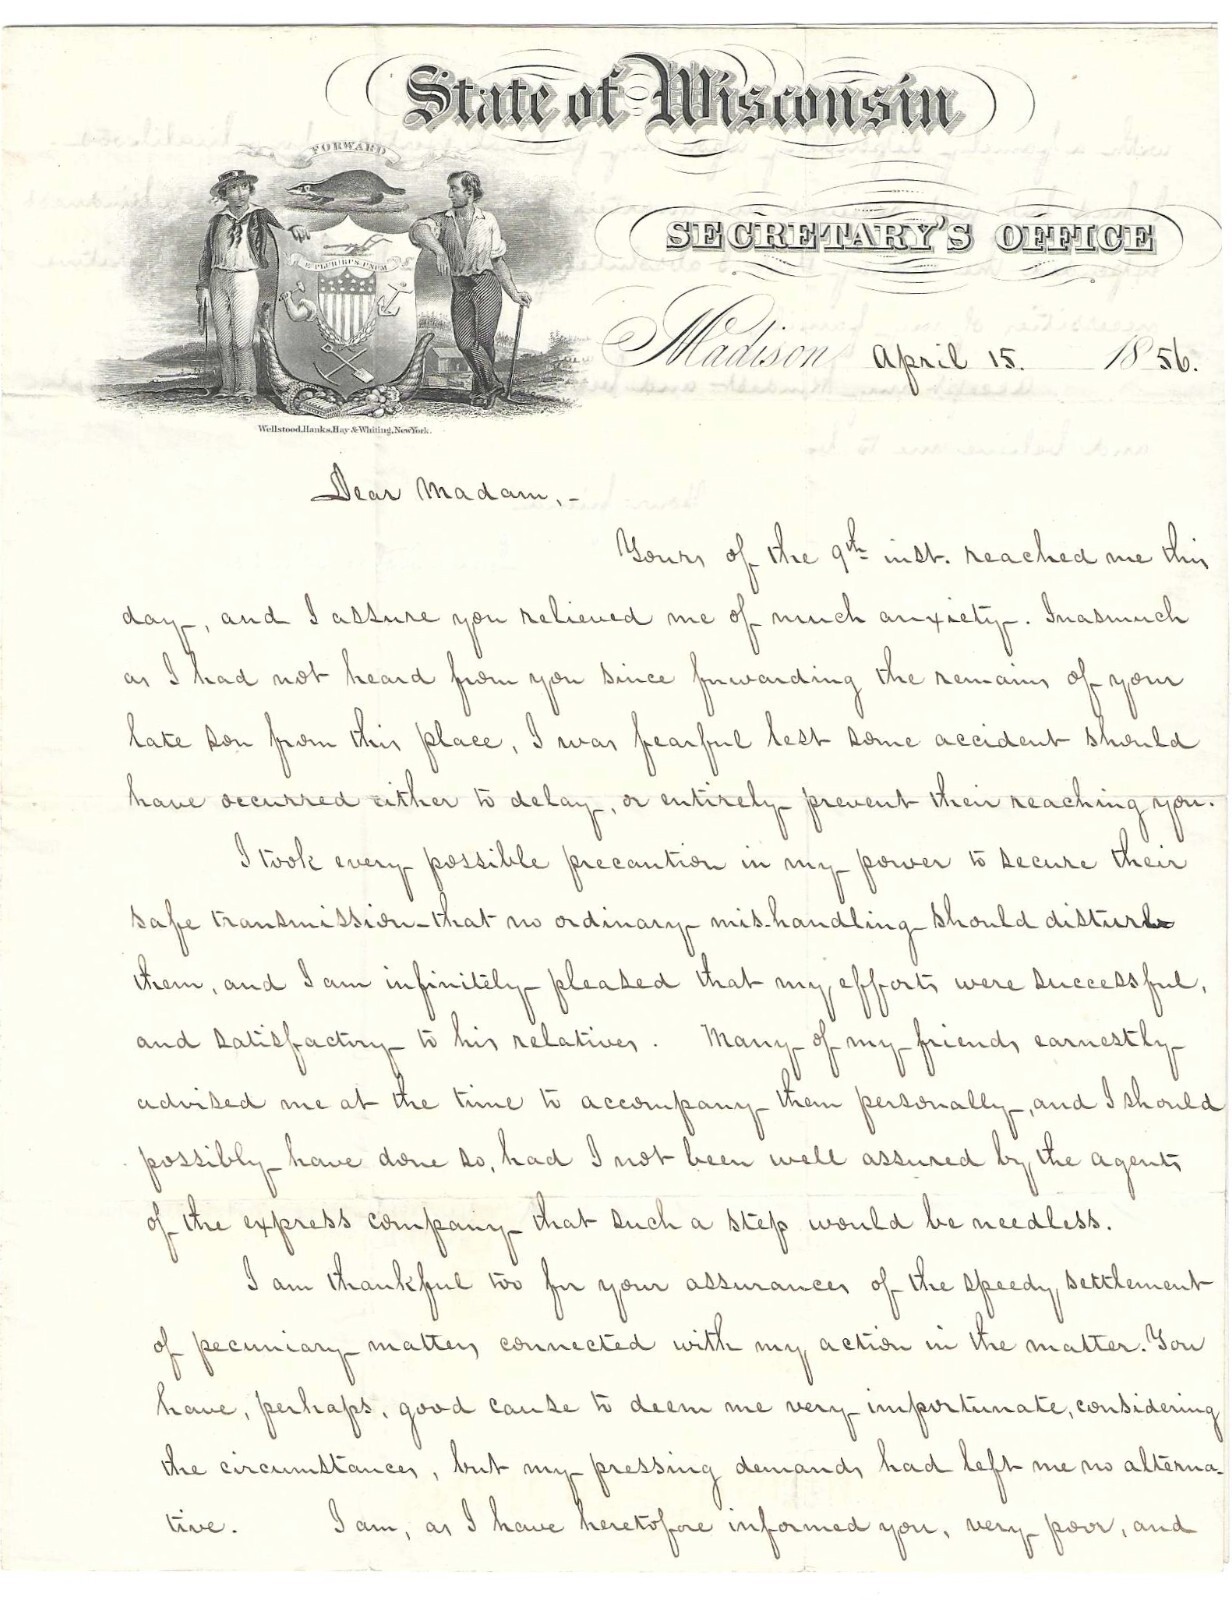 State of Wisconsin
FORWARD
E PLURIBUS UNUM
SECRETARY'S OFFICE
Madison April 15. 1856.
Wellstood, Hanks, Hay & Whiting, New York.
Dear Madam,-
Yours of the 9th inst. reached me this
day, and I assure you relieved me of much anxiety. Inasmuch
as I had not heard from you since forwarding the remains of your
late son from this place, I was fearful lest some accident should
have occurred either to delay, or entirely prevent their reaching you.
I took every possible precaution in my power to secure their
safe transmission-that no ordinary mis-handling should disturb
them, and I am infinitely pleased that my efforts were successful,
and satisfactory to his relatives. Many of my friends earnestly
advised me at the time to accompany them personally, and I should
possibly have done so, had I not been well assured by the agents
of the express company that such a step would be needless.
I am thankful too for your assurances of the speedy settlement
of pecuniary matters connected with my action in the matter. You
have, perhaps, good cause to deem me very importunate, considering
the circumstances, but my pressing demands had left me no alterna-
tive. I am, as I have heretofore informed you, very poor, and